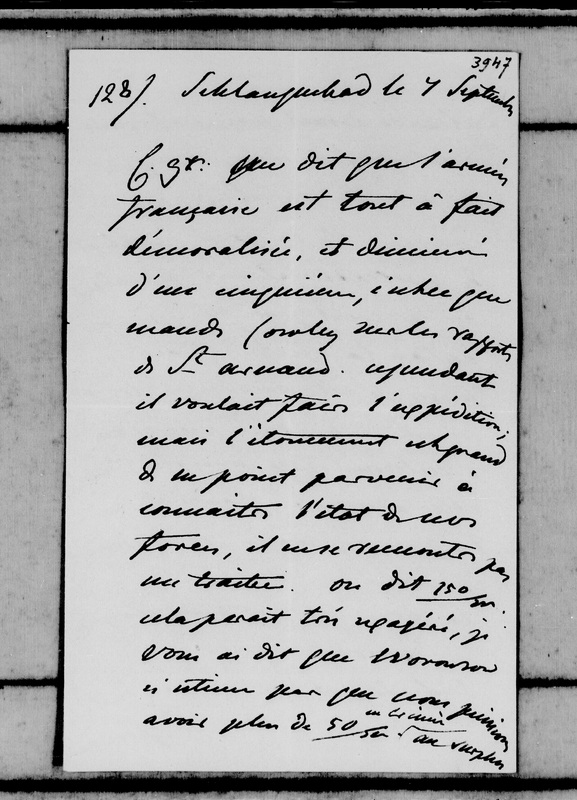 3947
128/. Schlangenbad le 7 Septembre
C. Gr. me dit que l'armée
française est tout à fait
démoralisée, et diminué
d'un cinquième, c'est ce que
mande Cowley sur les rapports
de St Arnaud. cependant
il voulait faire l'expédition,
mais l'étonnement est grand
de ne point parvenir à
connaitre l'état de nos
forces, il ne se rencontre pas
un traitre. on dit 150/m.
cela parait très exagéré, je
vous ai dit que Woronzow
n'estime pas que nous puissions
avoir plus de 50/m en Crimée. au surplus